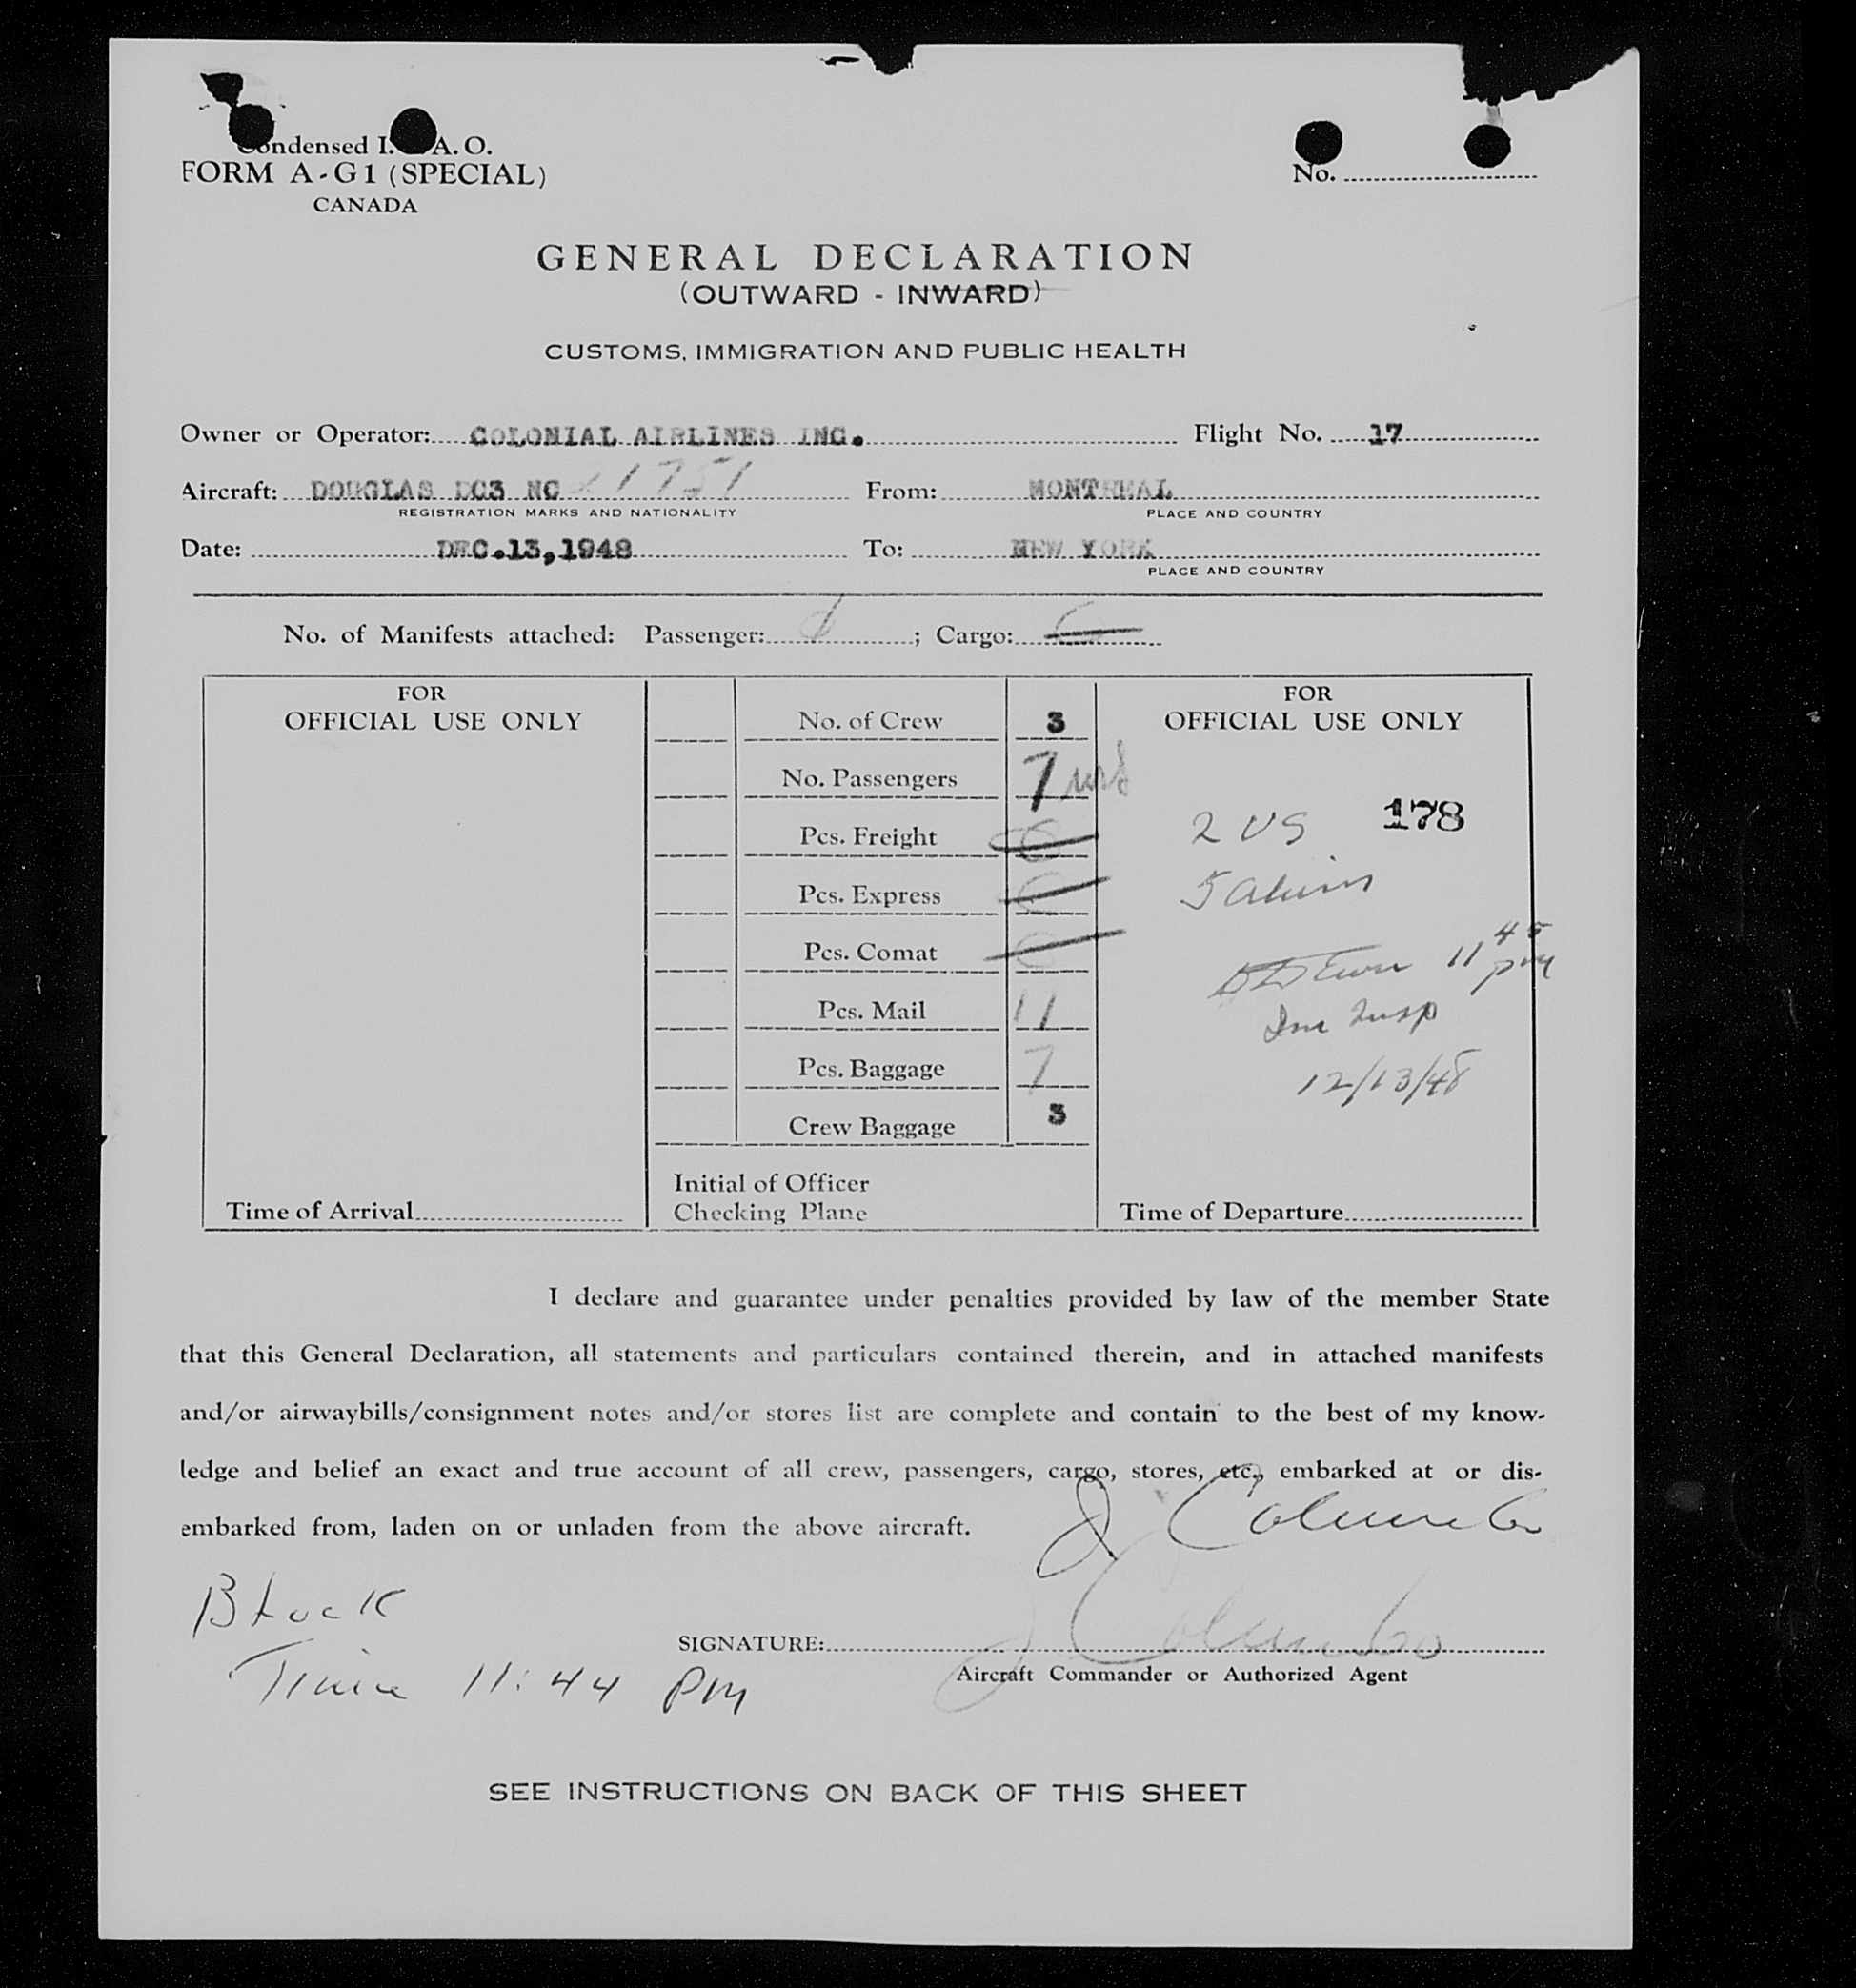 Condensed I. A. O.
FORM A-G1 (SPECIAL)
CANADA
No.
GENERAL DECLARATION
(OUTWARD - INWARD)
CUSTOMS, IMMIGRATION AND PUBLIC HEALTH
Owner or Operator: COLONIAL AIRLINES INC. Flight No. 17
Aircraft: DOUGLAS DC3 NC 21751 From: MONTREAL
REGISTRATION MARKS AND NATIONALITY PLACE AND COUNTRY
Date: DEC.13,1948 To: NEW YORK
PLACE AND COUNTRY
No. of Manifests attached: Passenger: 1 ; Cargo:
FOR
OFFICIAL USE ONLY
No. of Crew 3
No. Passengers 7
Pcs. Freight
Pcs. Express
Pcs. Comat
Pcs. Mail 11
Pcs. Baggage 7
Crew Baggage 3
Time of Arrival
Initial of Officer
Checking Plane
FOR
OFFICIAL USE ONLY
2 US 178
5 Aliens
11 45 pm
Imm Insp
12/13/48
Time of Departure
I declare and guarantee under penalties provided by law of the member State
that this General Declaration, all statements and particulars contained therein, and in attached manifests
and/or airwaybills/consignment notes and/or stores list are complete and contain to the best of my know-
ledge and belief an exact and true account of all crew, passengers, cargo, stores, etc., embarked at or dis-
embarked from, laden on or unladen from the above aircraft.
J Columbo
Block
Time 11:44 PM
SIGNATURE: J Columbo
Aircraft Commander or Authorized Agent
SEE INSTRUCTIONS ON BACK OF THIS SHEET